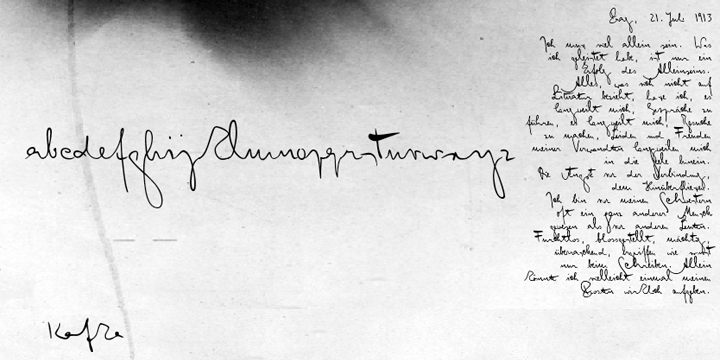 abcdefghijklmnopqrstuvwxyz
Kafka
Prag, 21. Juli 1913
Ich muss viel allein sein. Was
ich geleistet habe, ist nur ein
Erfolg des Alleinseins.
Alles, was sich nicht auf
Literatur bezieht, hasse ich, es
langweilt mich, Gespräche zu
führen, es langweilt mich, Besuche
zu machen, Leiden und Freuden
meiner Verwandten langweilen mich
in die Seele hinein.
Die Angst vor der Verbindung,
dem Hinüberfliessen.
Ich bin vor meinen Schwestern
oft ein ganz anderer Mensch
gewesen als vor anderen Leuten.
Furchtlos, blossgestellt, mächtig,
überraschend, ergriffen wie sonst
nur beim Schreiben. Allein
könnt ich vielleicht einmal meinen
Posten wirklich aufgeben.